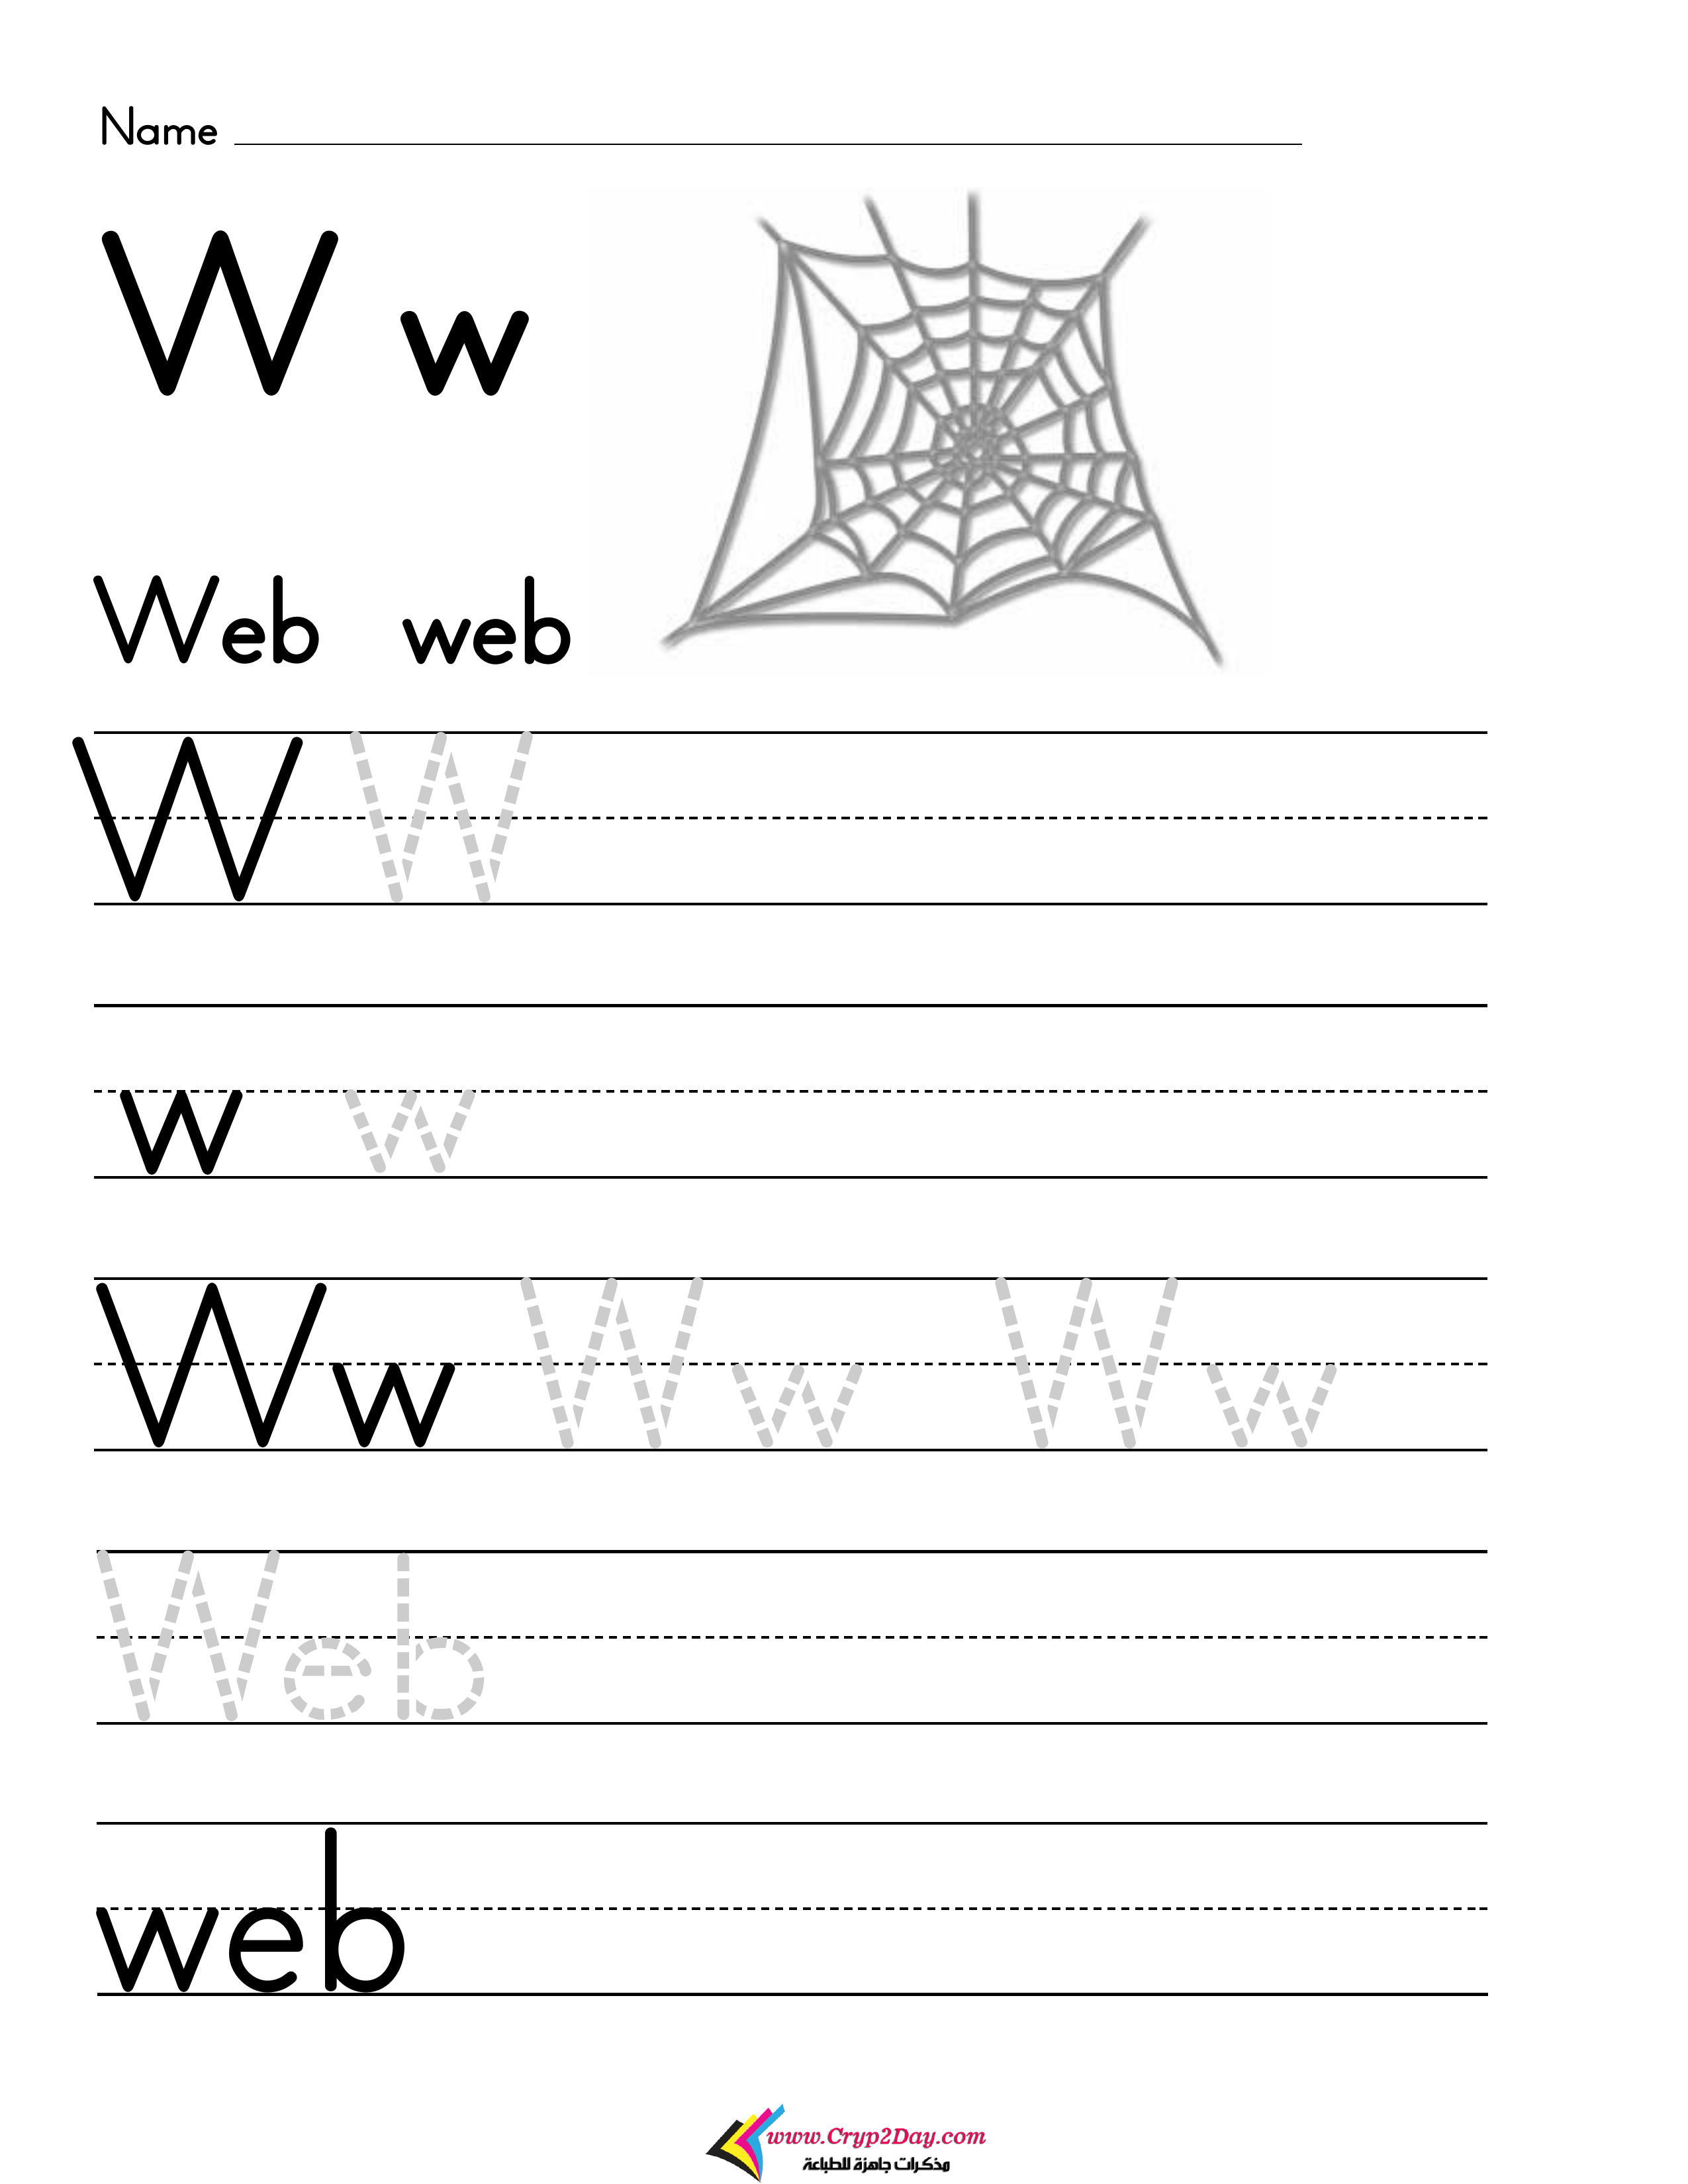 Name
W w
Web web
W W
w w
Ww Ww Ww
Web
web
www.Cryp2Day.com
مذكرات جاهزة للطباعة